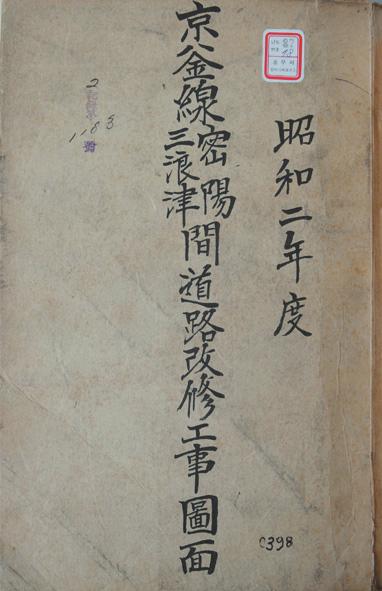 昭和二年度
京釜線密陽三浪津間道路改修工事圖面
0398
87
2
1183